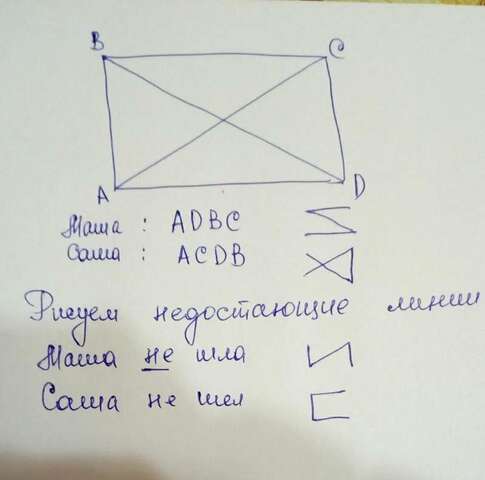 B C
A D
Маша : ADBC
Саша : ACDB
Рисуем недостающие линии
Маша не шла
Саша не шел